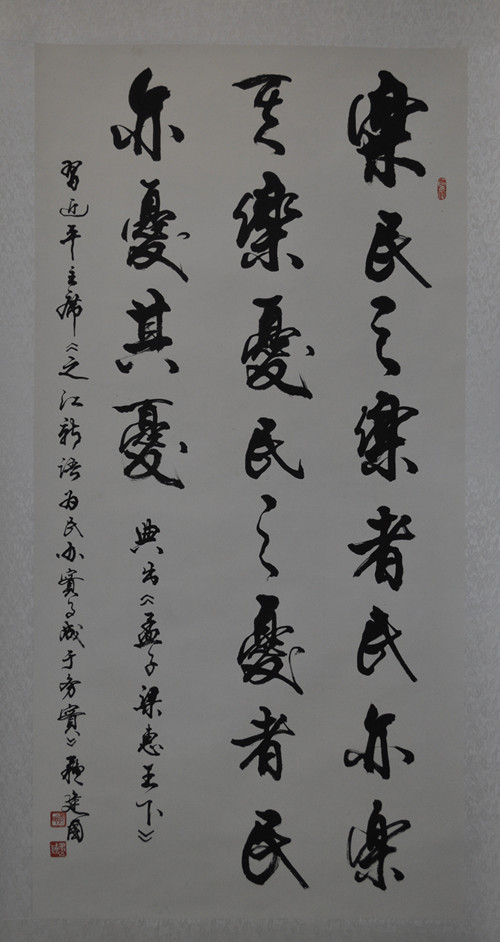 樂民之樂者民亦樂
其樂憂民之憂者民
亦憂其憂
典出《孟子梁惠王下》
習近平主席《之江新語为民办實事成于务實》建國